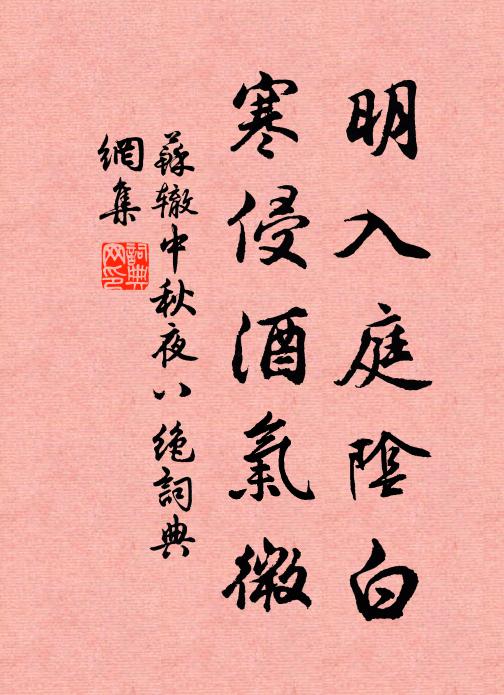 明入庭陰白
寒侵酒氣微
蘇辙中秋夜八绝詞典
網集
詞典网印